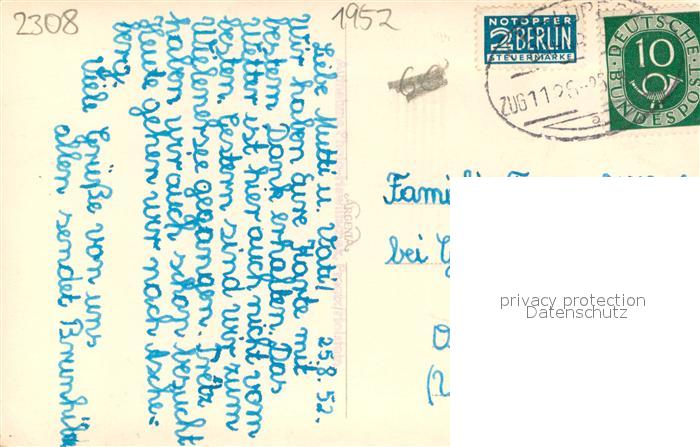 2308
1952
NOTOPFER
2 BERLIN
STEUERMARKE
DEUTSCHE
10
BUNDESPOST
ZUG 11
25.8.52.
Liebe Mutti u. Vati!
Wir haben Eure Karte mit
bestem Dank erhalten. Das
Wetter ist hier auch nicht vom
besten. Gestern sind wir zum
gegangen. Fritz
haben wir auch schon besucht
Heute gehen wir nach Esche=
berg.
Viele Grüße von uns
allen sendet Brunhild
Familie
bei
privacy protection
Datenschutz